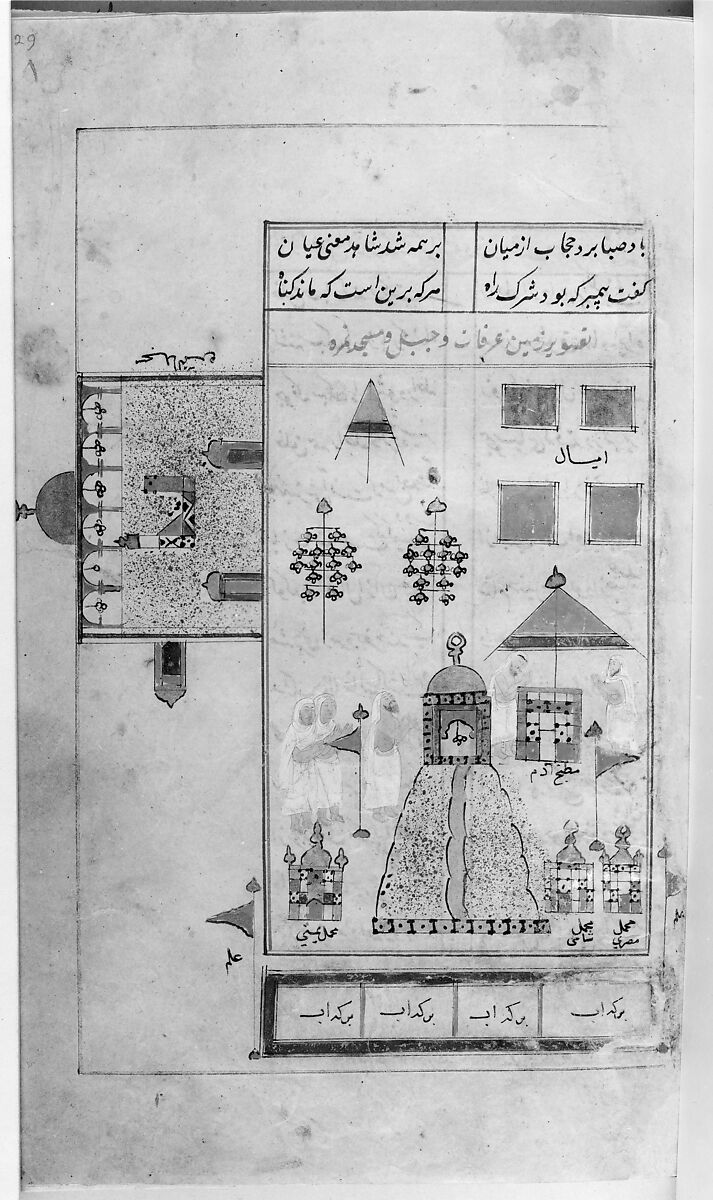 باد صبا برد حجاب از میان
بر همه شد شاهد معنی عیان
گفت پیمبر که بود شرک راه
هر که برین است که ماند گناه
تصویر زمین عرفات و جبل و مسجد نمره
امیال
مطبخ آدم
محمل یمنی
محمل شامی
محمل مصری
علم
علم
برکه آب
برکه آب
برکه آب
برکه آب
29